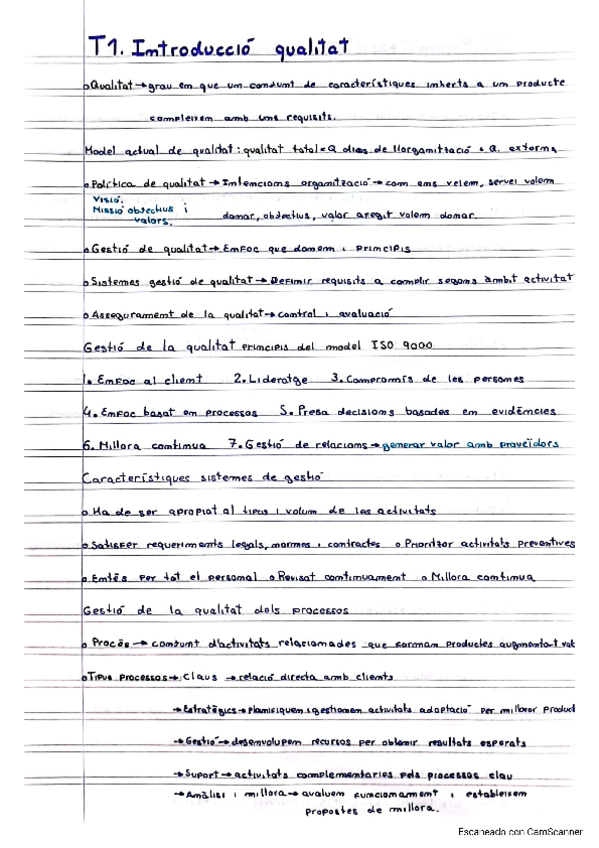 T1. Introducció qualitat
o Qualitat → grau en que un conjunt de característiques inherts a un producte
compleixen amb uns requisits.
Model actual de qualitat: qualitat total = Q dins de l'lorganització + Q. externa
o Política de qualitat → Intencions organització → com ens veiem, servei volem
Visió,
Missió objectius i
valors,
donar, objectius, valor afegit volem donar.
o Gestió de qualitat → Enfoc que donem i principis
o Sistemes gestió de qualitat → Definir requisits a complir segons àmbit activitat
o Assegurament de la qualitat → control i avaluació
Gestió de la qualitat principis del model ISO 9000
1. Enfoc al client 2. Lideratge 3. Compromís de les persones
4. Enfoc basat en processos 5. Presa decisions basades en evidències
6. Millora continua 7. Gestió de relacions → generar valor amb proveïdors
Característiques sistemes de gestió
o Ha de ser apropiat al tipus i volum de les activitats
o Satisfer requeriments legals, normes i contractes o Prioritzar activitats preventives
o Entès per tot el personal o Revisat continuament o Millora continua
Gestió de la qualitat dels processos
o Procés → conjunt d'activitats relacionades que formam productes augmentant val
o Tipus processos → Claus → relació directa amb clients
→ Estratègics → planifiquen i gestionen activitats adaptació per millorar product
→ Gestió → desenvolupem recursos per obtenir resultats esperats
→ Suport → activitats complementaries pels processos clau
→ Anàlisi i millora → avaluem funcionament i estableixen
propostes de millora.
Escaneado con CamScanner